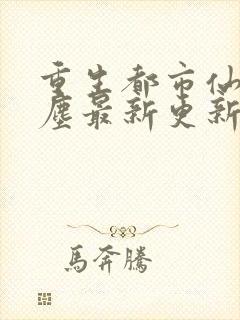 重生都市仙
塵最新更新
馬奔騰